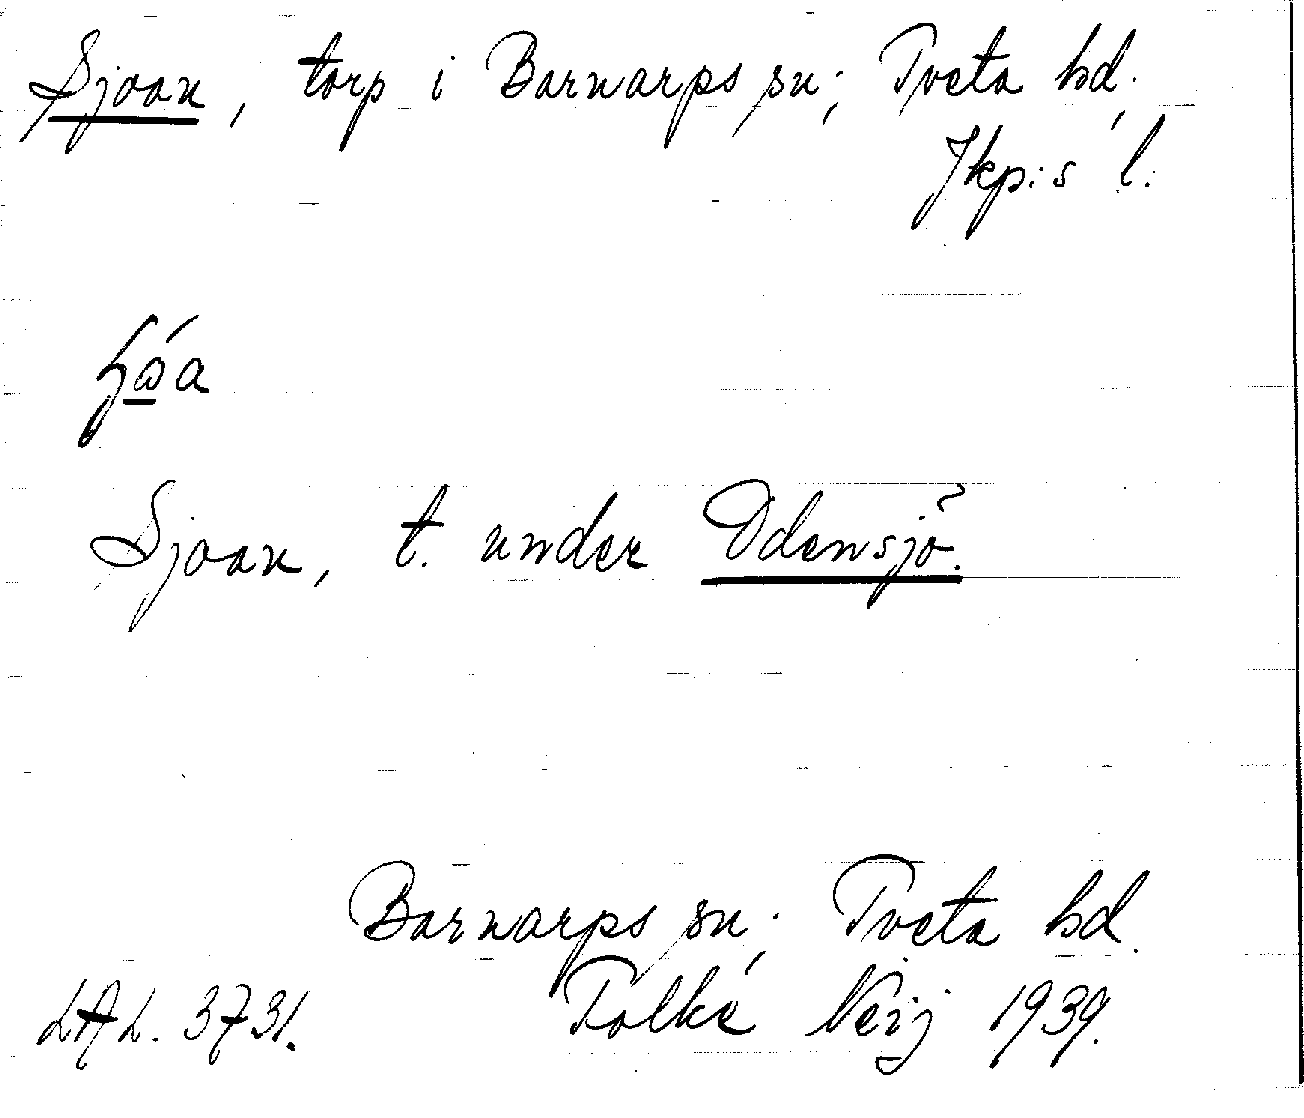 Sjoan, torp i Barnarps sn; Tveta hd,
Jkp:s l.
Sjoan, t. under Odensjö.
Barnarps sn; Tveta hd.
LAL. 3731. Folke Neij 1939.